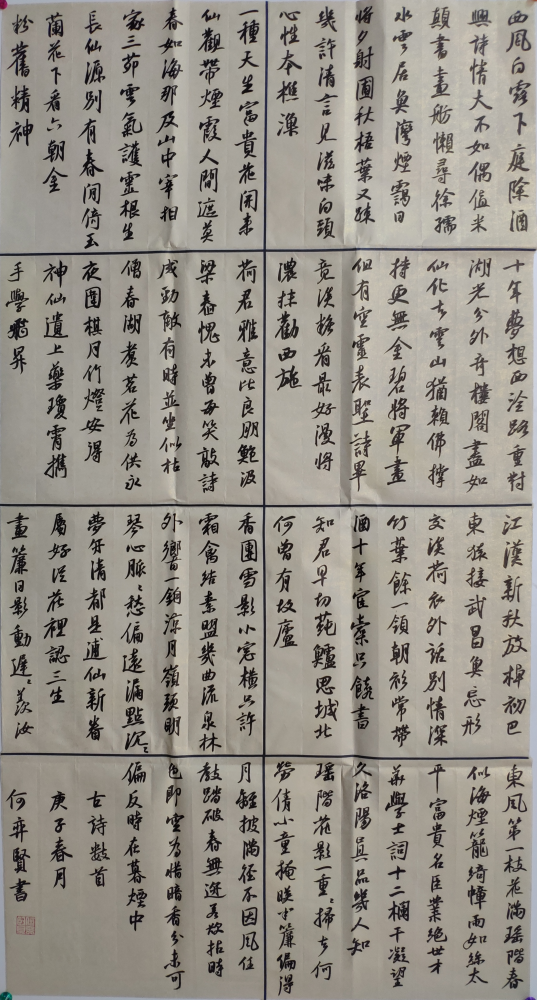 西風白露下庭除酒
興詩情大不如偶值米
顛書畫舫懶尋徐孺
水雲居魚灣煙靄日
將夕射圃秋梧葉又疎
幾許清言見滋味白頭
心性本樵漁
一種天生富貴花開來
仙觀帶煙霞人間遮莫
春如海那及山中宰相
家三節雲氣護靈根生
長仙源別有春閒倚玉
蘭花下看六朝金
粉舊精神
十年夢想西泠路重對
湖光分外奇樓閣盡如
仙化去雲山猶賴佛撐
持更無金碧將軍畫
但有空靈表聖詩畢
竟淡粧看最好漫將
濃抹勸西施
荷君雅意比良朋鮑汲
梁舂愧未曾每笑敲詩
成勁敵有時並坐似枯
僧春湖煮茗花為供永
夜圍棋月作燈安得
神仙遺上藥瓊霄攜
手學飛昇
江漢新秋放棹初巴
東猿接武昌魚忘形
交淡荷衣外話別情深
竹葉餘一領朝衫常帶
酒十年宦橐只饒書
知君早切蓴鱸思城北
何曾有故廬
香團雪影小窗橫只許
霜禽結素盟幾曲流泉林
外響一鉤涼月嶺頭明
琴心脈〻愁偏遠漏點沉〻
夢清都是逋仙新眷
屬好從花裡認三生
畫簾日影動遲〻羨汝
東風第一枝花滿瑤階春
似海煙籠綺幛雨如絲太
平富貴名臣業絕世才
華學士詞十二欄干凝望
久洛陽真品幾人知
瑤階花影一重〻掃去何
勞倩小童掩映半簾偏得
月輕披滿徑不因風任
教踏破春無迹若欲拈時
色即空為惜暗香分未可
偏反時在暮煙中
古詩數首
庚子春月
何弈賢書